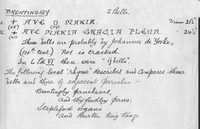 BRENTINGBY 2 Bells.
+ AVE MARIA
+ AVE MARIA GRACIA PLENA
These bells are probably by Johannes de Yorke,
(14th Cent.) Not is cracked.
In 6 Ed VI there were "ij bells".
The following local rhyme describes and compares these
bells and those of adjacent parishes:—
Brentingby pancheons,
and Wyfordby pans,
Stapleford organs
and Burton ting tangs.